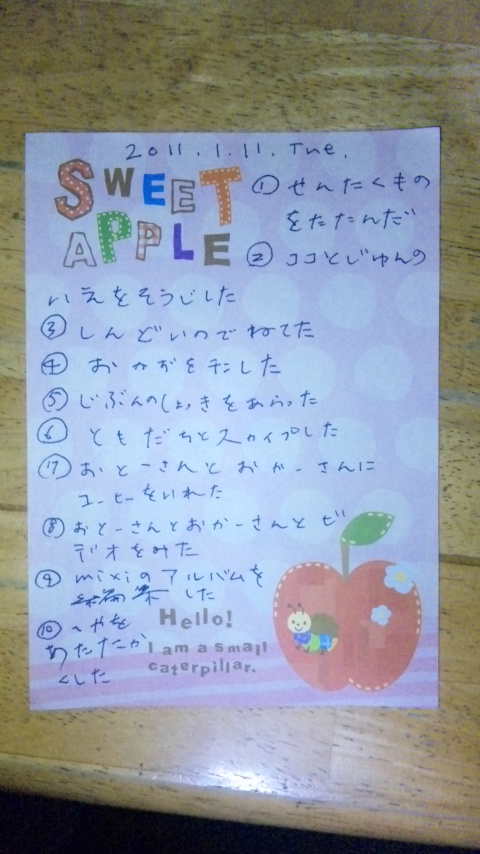 2011.1.11.Tue.
SWEET
APPLE
① せんたくもの
をたたんだ
② ココとじゅんの
いえをそうじした
③ しんどいのでねてた
④ おかずを干した
⑤ じぶんのしょっきをあらった
⑥ ともだちとスカイプした
⑦ おとーさんとおかーさんに
コーヒーをいれた
⑧ おとーさんとおかーさんとビ
デオをみた
⑨ mixiのアルバムを
編纂した
⑩ へやを
あたたか
くした
Hello!
I am a small
caterpillar.